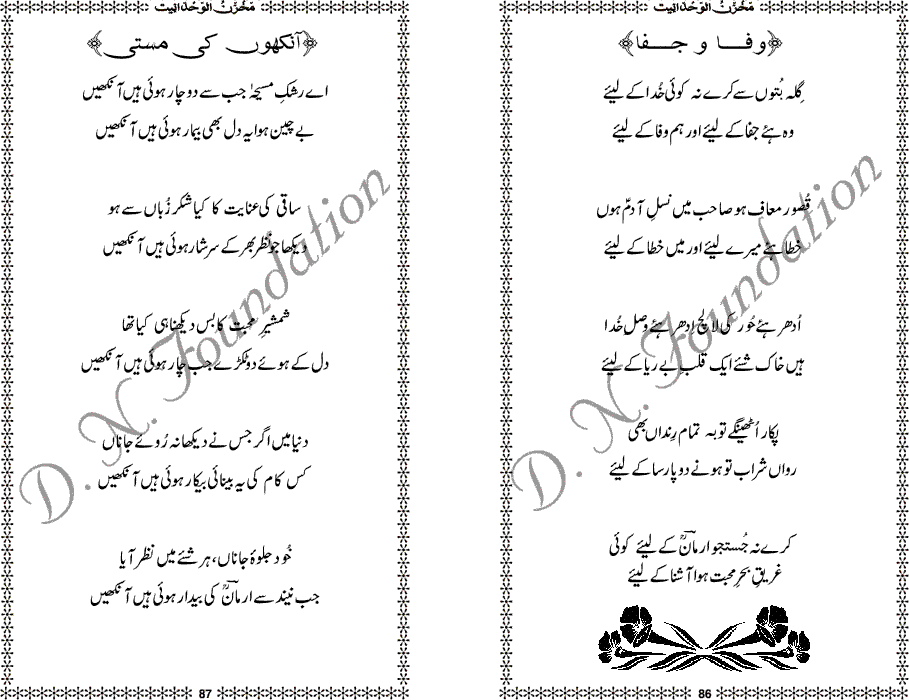 مَخْزَنُ الوَحْدَانِیت
وفا و جفا
گِلہ بُتوں سے کرے نہ کوئی خُدا کے لیئے
وہ ہئے جفا کے لیئے اور ہم وفا کے لیئے
قُصور معاف ہو صاحب میں نسلِ آدمؑ ہوں
خطا ہئے میرے لیئے اور میں خطا کے لیئے
اُدھر ہئے حُور کی لالچ اِدھر ہئے وصلِ خُدا
ہیں خاک شئے ایک قلبِ بے ریا کے لیئے
پُکار اُٹھینگے توبہ تمام رِنداں بھی
رواں شراب تو ہونے دو پارسا کے لیئے
کرے نہ جُستجو ارمانؔ کے لیئے کوئی
غریقِ بحرِ محبت ہوا آشنا کے لیئے
86
مَخْزَنُ الوَحْدَانِیت
آنکھوں کی مستی
اے رشکِ مسیحؑا جب سے دوچار ہوئی ہیں آنکھیں
بے چین ہوا یہ دل بھی بیمار ہوئی ہیں آنکھیں
ساقی کی عنایت کا کیا شکر زُباں سے ہو
دیکھا جو نظر بھر کے سرشار ہوئی ہیں آنکھیں
شمشیرِ محبت کا بس دیکھنا ہی کیا تھا
دل کے ہوئے دو ٹکڑے جب چار ہوئی ہیں آنکھیں
دنیا میں اگر جس نے دیکھا نہ رُوئے جاناں
کس کام کی یہ بینائی بیکار ہوئی ہیں آنکھیں
خُود جلوۂ جاناں، ہر شئے میں نظر آیا
جب نیند سے ارمانؔ کی بیدار ہوئی ہیں آنکھیں
87
D. N. Foundation
D. N. Foundation